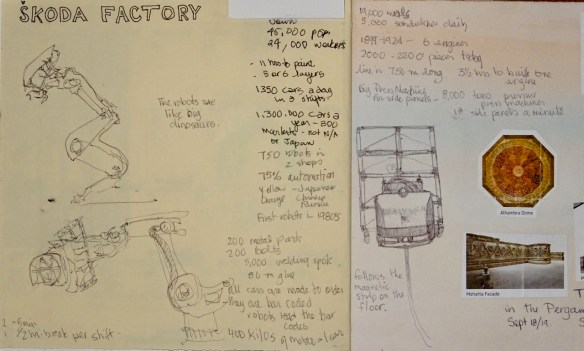 ŠKODA FACTORY
Town
45,000 pop
24,000 workers
- 11 hrs to paint
- 5 or 6 layers
1350 cars a day
in 3 shifts
1,300,000 cars a
year - 
markets - not N/A
or Japan
750 robots in
2 shops
75% automation
Yellow - Japanese
Orange
First robots in 1980s
The robots are
like big
dinosaurs.
200 metal parts
200 bolts
5,000 welding spots
86 m glue
All cars are made to order
They are bar coded
robots read the bar
codes
400 kilos of metal = 1 car
1/2 hr break per shift.
meals
3,000 sandwiches daily
1899-1924 - 6 engines
2000 - 2200 pieces today
line is 750 m long 3 1/2 hrs to build one
engine
Big Press Machine
for side panels - 8,000 tons pressure
press machines
side panels a minute
follows the
magnetic
strip on the
floor.
Alhambra Dome
Mshatta Facade
in the Pergam
Sept 18/19